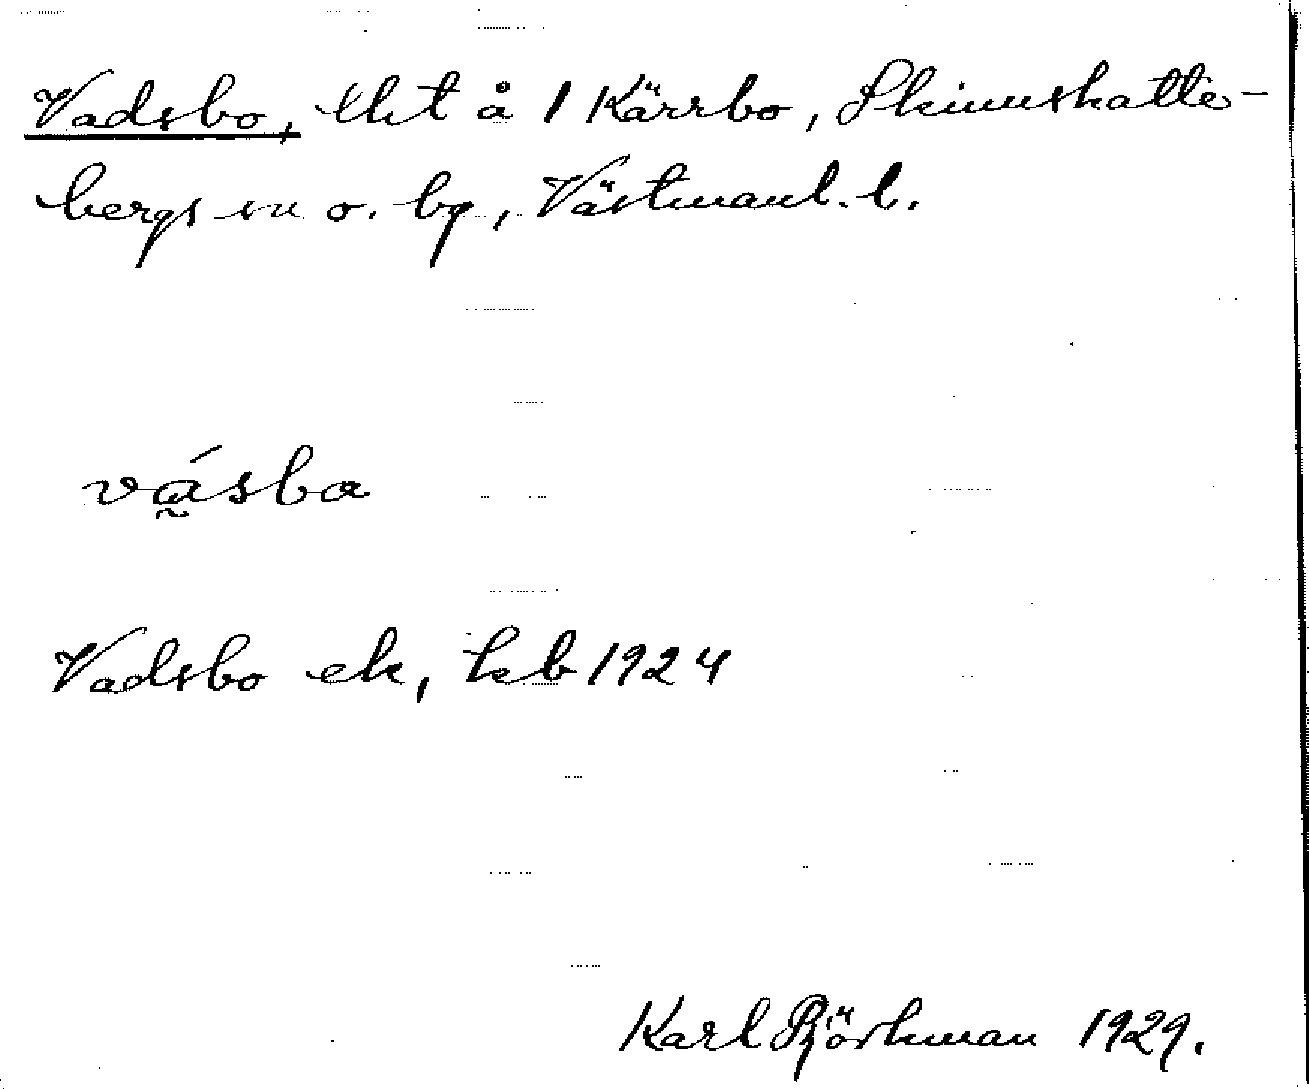 Vadsbo, lht å 1 Kärrbo, Skinnskatte-
bergs sn o. bg, Västmanl. l.
vásba
Vadsbo ek, kb 1924
Karl Björkman 1929.